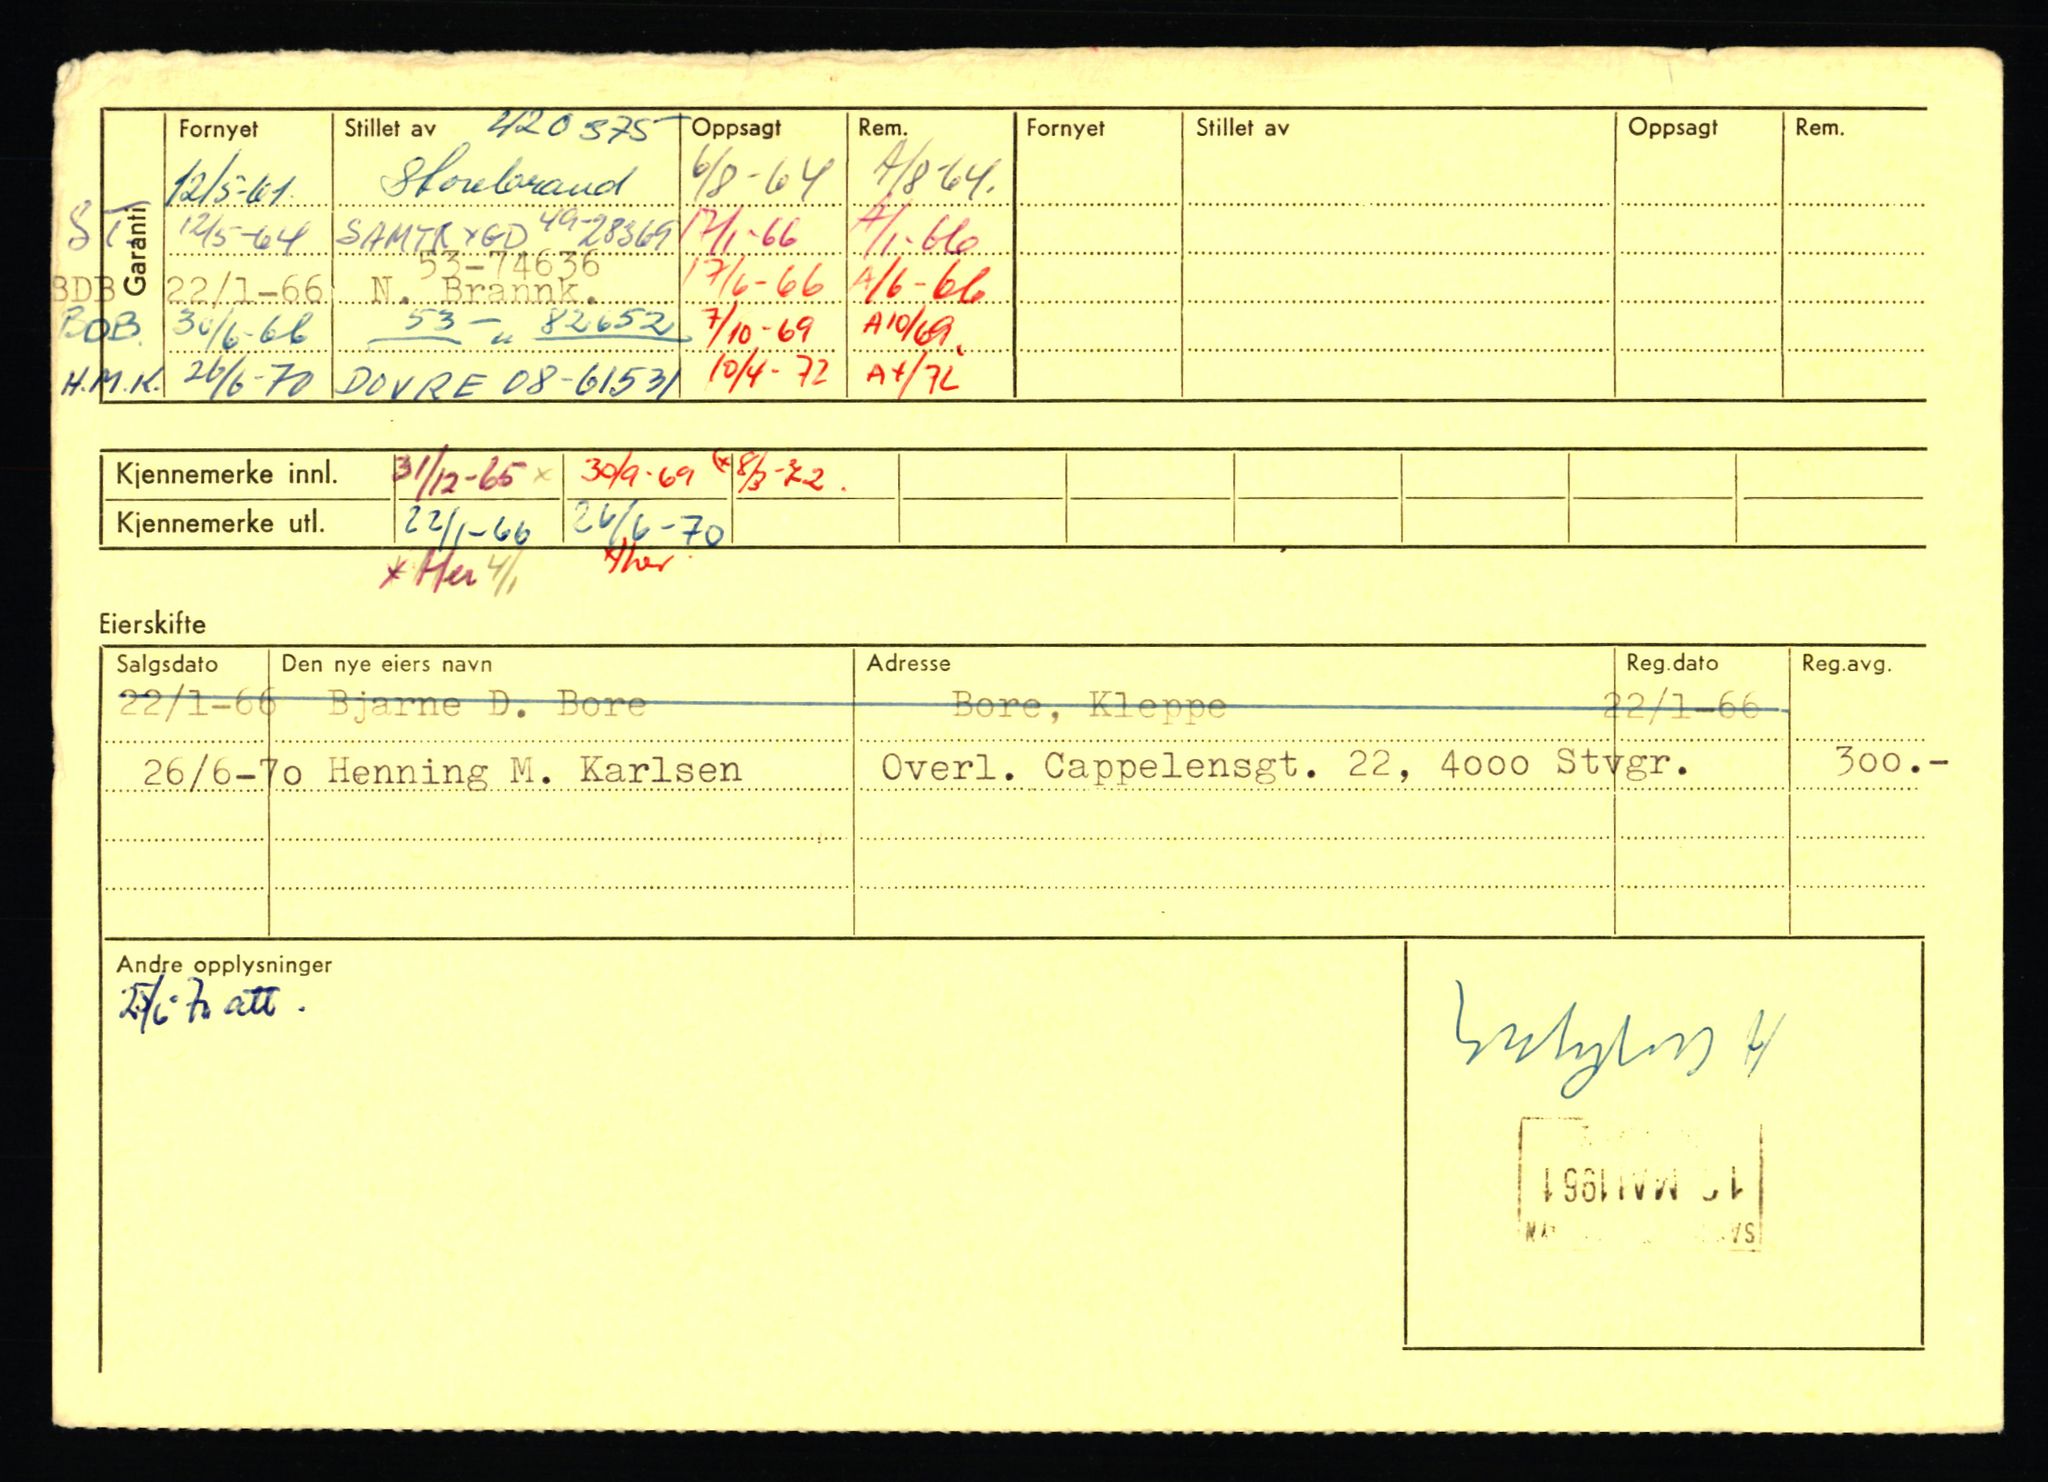 Garanti Fornyet Stillet av 420375 Oppsagt Rem. Fornyet Stillet av Oppsagt Rem.
12/5-61. Storebrand 6/8-64 A/8-64.
ST. 12/5-64 SAMTRYGD 49-28369 17/1-66 A/1-66
53-74636
BDB 22/1-66 N. Brannk. 17/6-66 A/6-66
BOB. 30/6-66 53 - " 82652 7/10-69 A10/69.
H.M.K. 26/6-70 DOVRE 08-61531 10/4-72 A4/72
Kjennemerke innl. 31/12-65 x 30/9-69 (x 8/3-72.
Kjennemerke utl. 22/1-66 26/6-70
x Her 4/1 x/her
Eierskifte
Salgsdato Den nye eiers navn Adresse Reg.dato Reg.avg.
22/1-66 Bjarne D. Bore Bore, Kleppe 22/1-66
26/6-7o Henning M. Karlsen Overl. Cappelensgt. 22, 4ooo Stvgr. 3oo.-
Andre opplysninger
25/6-70 att.
MAI 1961